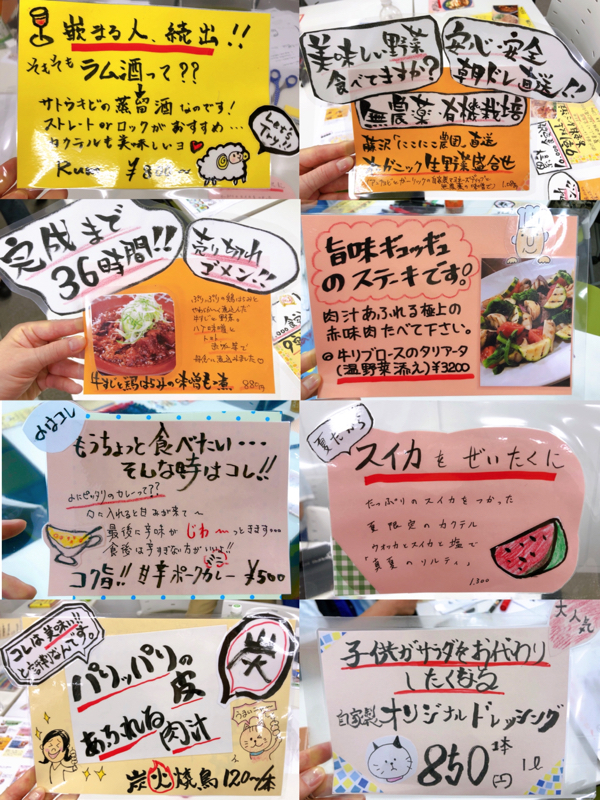 嵌まる人、続出!!
そもそも
ラム酒って??
サトウキビの蒸留酒なのです!
ストレートorロックがおすすめ…
カクテルも美味しいヨ
Rum ¥800~
Let's Try!!
美味しい野菜
食べてますか?
安心・安全
朝ドレ直送!!
無農薬・有機栽培
藤沢「にこにこ農園」直送
オーガニック生野菜盛合せ
完成まで
36時間!!
売り切れ
ゴメン!!
牛すじと鶏はらみの味噌煮
880円
旨味ギュッギュ
のステーキです。
肉汁あふれる極上の
赤味肉たべて下さい。
牛リブロースのタリアータ
(温野菜添え)¥3200
〆はコレ
もうちょっと食べたい…
そんな時はコレ!!
〆にピッタリのカレーって??
口に入れると甘みが来て~
最後に辛味が じわ~っときます…
食後は辛すぎない方がいいよ!!
コク旨!! 甘辛ポークカレー ¥500
夏だから
スイカをぜいたくに
たっぷりのスイカをつかった
夏限定のカクテル
ウォッカとスイカと塩で
「真夏のソルティ」
1,300
コレは美味い!!
と評判なんです。
パリッパリの
皮
あふれる肉汁
炭
うまい
炭火焼鳥 120~/本
大人気
子供がサラダをお代わり
したくなる
自家製オリジナルドレッシング
850円
1本
1ℓ